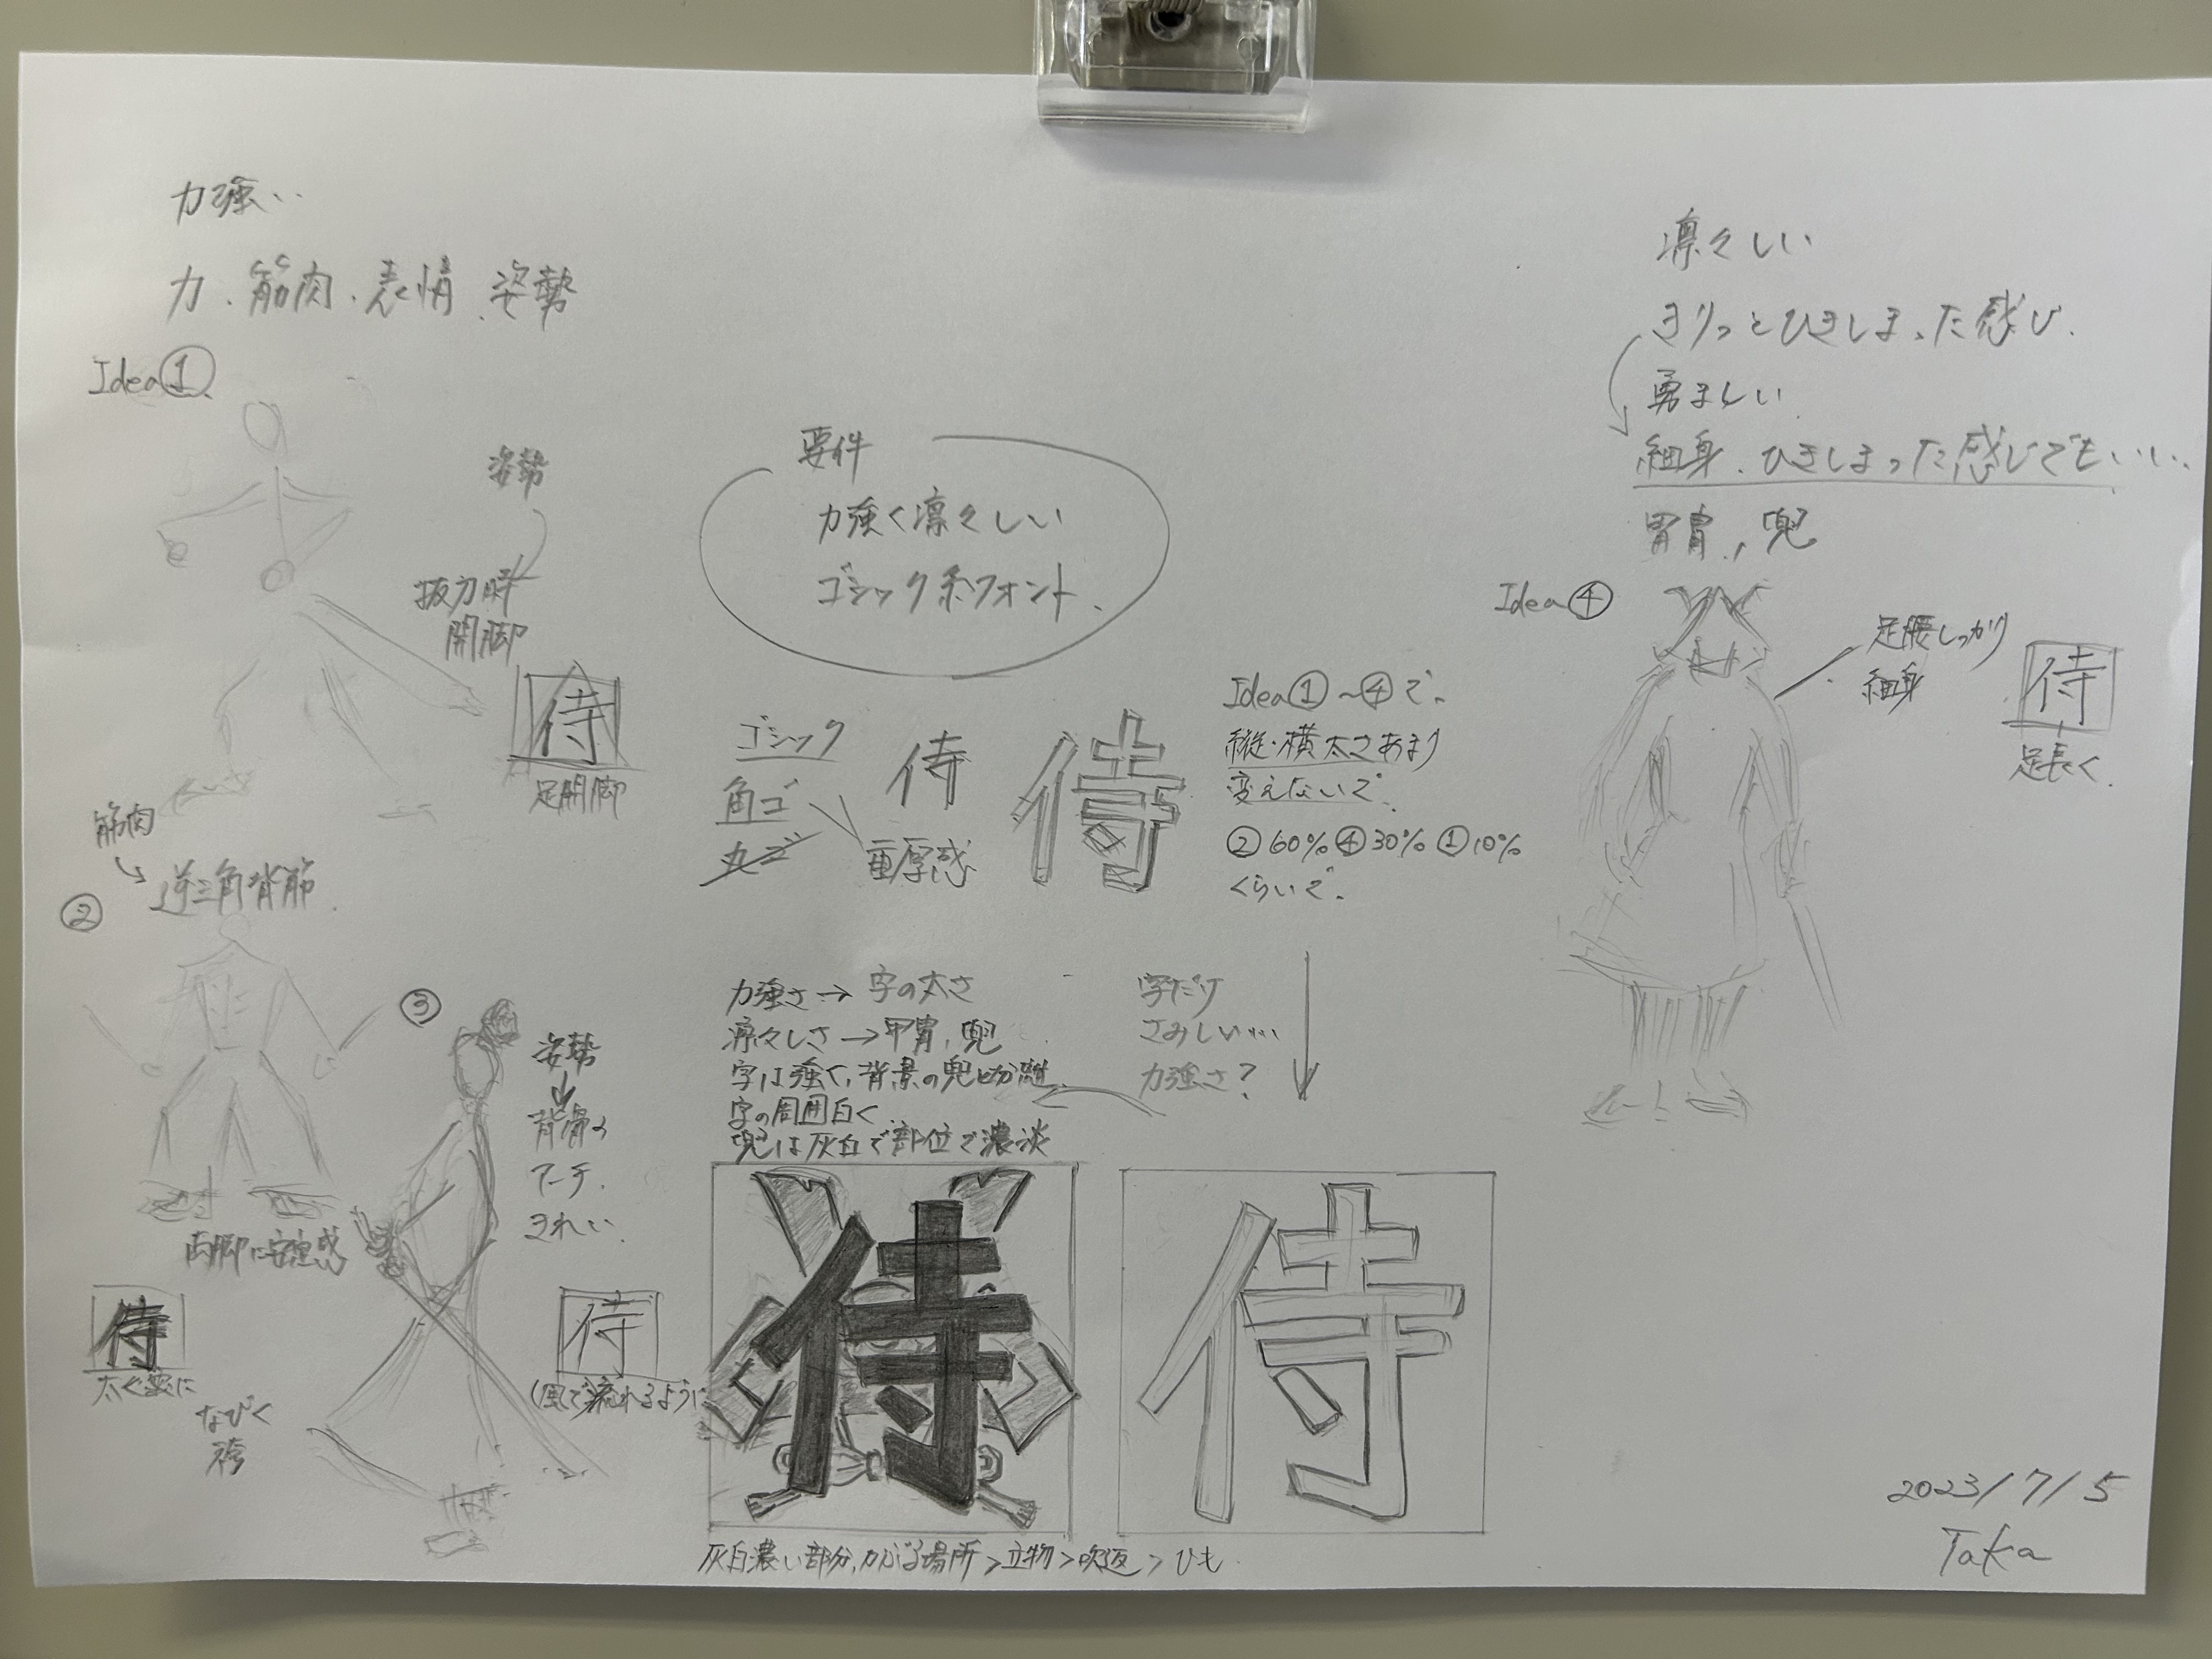 力強い
力、筋肉、表情、姿勢
Idea①
姿勢
抜刀時
開脚
侍
足開脚
筋肉
逆三角背筋
②
両脚に安定感
侍
太く
なびく
袴
③
姿勢
背骨の
アーチ
きれい
侍
(風で流れるように)
要件
力強く凛々しい
ゴシック系フォント
ゴシック
角ゴ
丸ゴ
重厚感
侍
侍
Idea①~④で、
縦・横太さあまり
変えないで、
②60%④30%①10%
くらいで、
字だけ
さみしい…
力強さ?
力強さ→字の太さ
凛々しさ→甲冑、兜
字は強く、背景の兜と分離
字の周囲白く
兜は灰白で部位で濃淡
侍
侍
灰白濃い部分、かぶる場所>立物>吹返>ひも
凛々しい
きりっとひきしまった感じ、
勇ましい
細身、ひきしまった感じでもいい
甲冑、兜
Idea④
足腰しっかり
細身
侍
足長く
2023/7/5
Taka